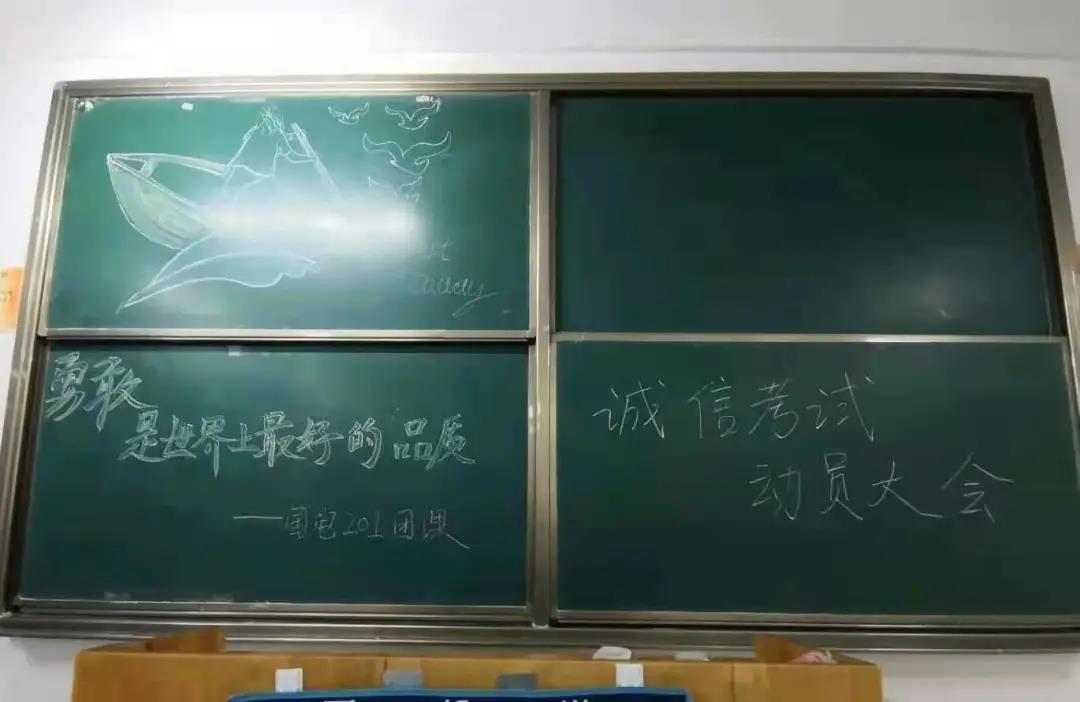 勇敢
是世界上最好的品质
——国电201团课
诚信考试
动员大会